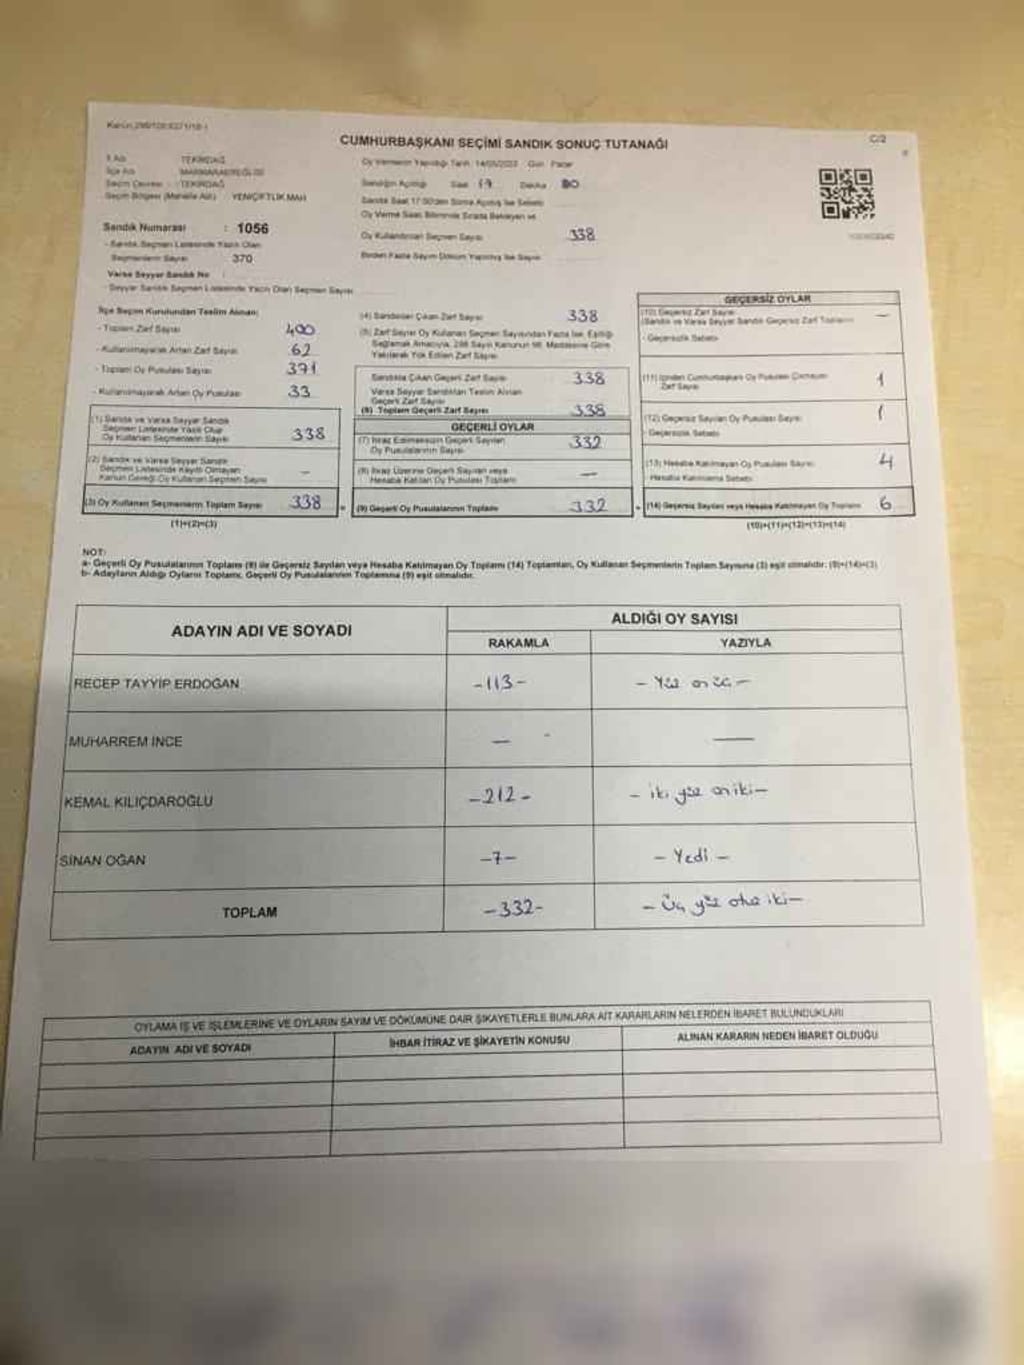 CUMHURBAŞKANI SEÇİMİ SANDIK SONUÇ TUTANAĞI
C/2
İl Adı : TEKİRDAĞ
İlçe Adı : MARMARAEREĞLİSİ
Seçim Çevresi : TEKİRDAĞ
Seçim Bölgesi (Mahalle Adı) : YENİÇİFTLİK MAH
Oy Vermenin Yapıldığı Tarih : 14/05/2023 Gün : Pazar
Sandığın Açıldığı Saat 17 Dakika
Sandık Saat 17.00'den Sonra Açılmış İse Sebebi
Oy Verme Saati Bitiminde Sırada Bekleyen ve
Oy Kullandırılan Seçmen Sayısı 338
Birden Fazla Sayım Döküm Yapılmış İse Sayısı
Sandık Numarası : 1056
- Sandık Seçmen Listesinde Yazılı Olan
Seçmenlerin Sayısı 370
Varsa Seyyar Sandık No :
- Seyyar Sandık Seçmen Listesinde Yazılı Olan Seçmen Sayısı
İlçe Seçim Kurulundan Teslim Alınan;
- Toplam Zarf Sayısı 400
- Kullanılmayarak Artan Zarf Sayısı 62
- Toplam Oy Pusulası Sayısı 371
- Kullanılmayarak Artan Oy Pusulası 33
(1) Sandık ve Varsa Seyyar Sandık
Seçmen Listesinde Yazılı Olup
Oy Kullanan Seçmenlerin Sayısı 338
(2) Sandık ve Varsa Seyyar Sandık
Seçmen Listesinde Kayıtlı Olmayan
Kanun Gereği Oy Kullanan Seçmen Sayısı -
(3) Oy Kullanan Seçmenlerin Toplam Sayısı 338
(1)+(2)=(3)
(4) Sandıktan Çıkan Zarf Sayısı 338
(5) Zarf Sayısı Oy Kullanan Seçmen Sayısından Fazla İse, Eşitliği
Sağlamak Amacıyla, 298 Sayılı Kanunun 98. Maddesine Göre
Yakılarak Yok Edilen Zarf Sayısı
Sandıkta Çıkan Geçerli Zarf Sayısı 338
Varsa Seyyar Sandıktan Teslim Alınan
Geçerli Zarf Sayısı
(6) Toplam Geçerli Zarf Sayısı 338
GEÇERLİ OYLAR
(7) İtiraz Edilmeksizin Geçerli Sayılan
Oy Pusulalarının Sayısı 332
(8) İtiraz Üzerine Geçerli Sayılan veya
Hesaba Katılan Oy Pusulası Toplamı —
(9) Geçerli Oy Pusulalarının Toplamı 332
GEÇERSİZ OYLAR
(10) Geçersiz Zarf Sayısı —
(Sandık ve Varsa Seyyar Sandık Geçersiz Zarf Toplamı)
- Geçersizlik Sebebi
(11) İçinden Cumhurbaşkanı Oy Pusulası Çıkmayan
Zarf Sayısı 1
(12) Geçersiz Sayılan Oy Pusulası Sayısı 1
- Geçersizlik Sebebi
(13) Hesaba Katılmayan Oy Pusulası Sayısı 4
- Hesaba Katılmama Sebebi
(14) Geçersiz Sayılan veya Hesaba Katılmayan Oy Toplamı 6
(10)+(11)+(12)+(13)=(14)
NOT:
a- Geçerli Oy Pusulalarının Toplamı (9) ile Geçersiz Sayılan veya Hesaba Katılmayan Oy Toplamı (14) Toplamları, Oy Kullanan Seçmenlerin Toplam Sayısına (3) eşit olmalıdır. (9)+(14)=(3)
b- Adayların Aldığı Oyların Toplamı, Geçerli Oy Pusulalarının Toplamına (9) eşit olmalıdır.
ADAYIN ADI VE SOYADI
ALDIĞI OY SAYISI
RAKAMLA YAZIYLA
RECEP TAYYİP ERDOĞAN -113- - Yüz onüç -
MUHARREM İNCE — —
KEMAL KILIÇDAROĞLU -212- - iki yüz oniki -
SİNAN OĞAN -7- - Yedi -
TOPLAM -332- - Üç yüz otuz iki -
OYLAMA İŞ VE İŞLEMLERİNE VE OYLARIN SAYIM VE DÖKÜMÜNE DAİR ŞİKAYETLERLE BUNLARA AİT KARARLARIN NELERDEN İBARET BULUNDUKLARI
ADAYIN ADI VE SOYADI İHBAR İTİRAZ VE ŞİKAYETİN KONUSU ALINAN KARARIN NEDEN İBARET OLDUĞU